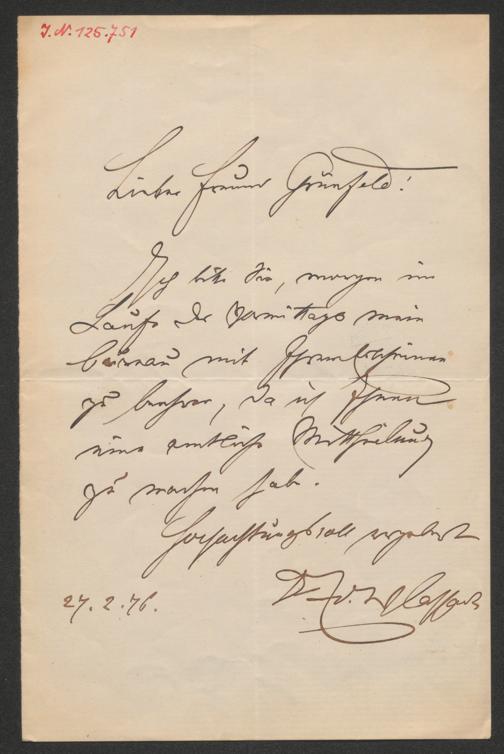 J.N. 125.751
Lieber Freund Grünfeld!
Ich bitte Sie, morgen im
Laufe des Vormittags mein
Bureau mit Ihrem Erscheinen
zu beehren, da ich Ihnen
eine amtliche Mittheilung
zu machen habe.
Hochachtungsvoll ergebenst
27.2.76.